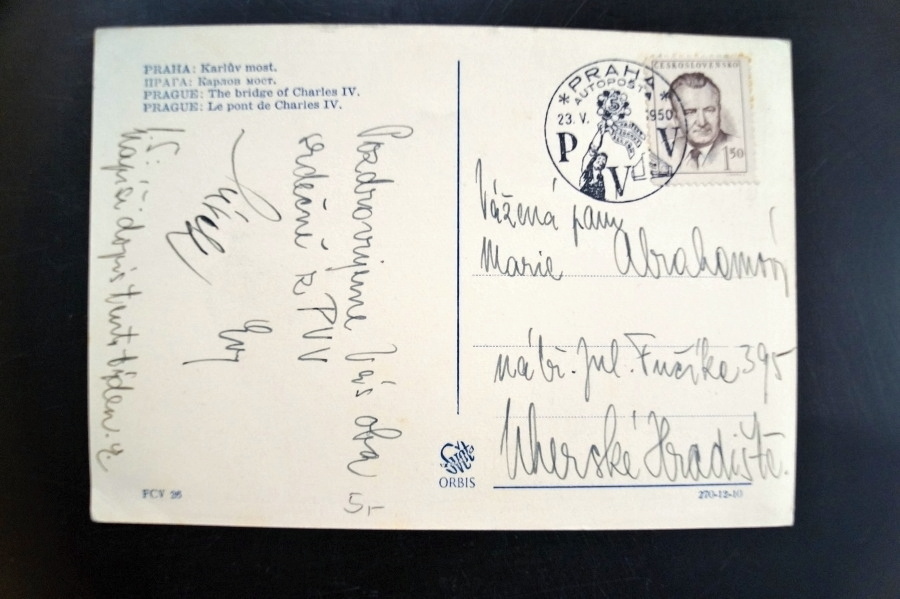 PRAHA: Karlův most.
ПРАГА: Карлов мост.
PRAGUE: The bridge of Charles IV.
PRAGUE: Le pont de Charles IV.
Pozdravujeme Vás oba
srdečně z PVV
P.S:
Napíši dopis tento týden. E
ČESKOSLOVENSKO
1 50
* PRAHA *
AUTOPOŠTA
5
23. V. 1950
P V V
Vážená paní
Marie Abrahamová
nábř. Jul. Fučíka 395
Uherské Hradiště.
Svět
ORBIS
5,-
FCV 26
270-12-10